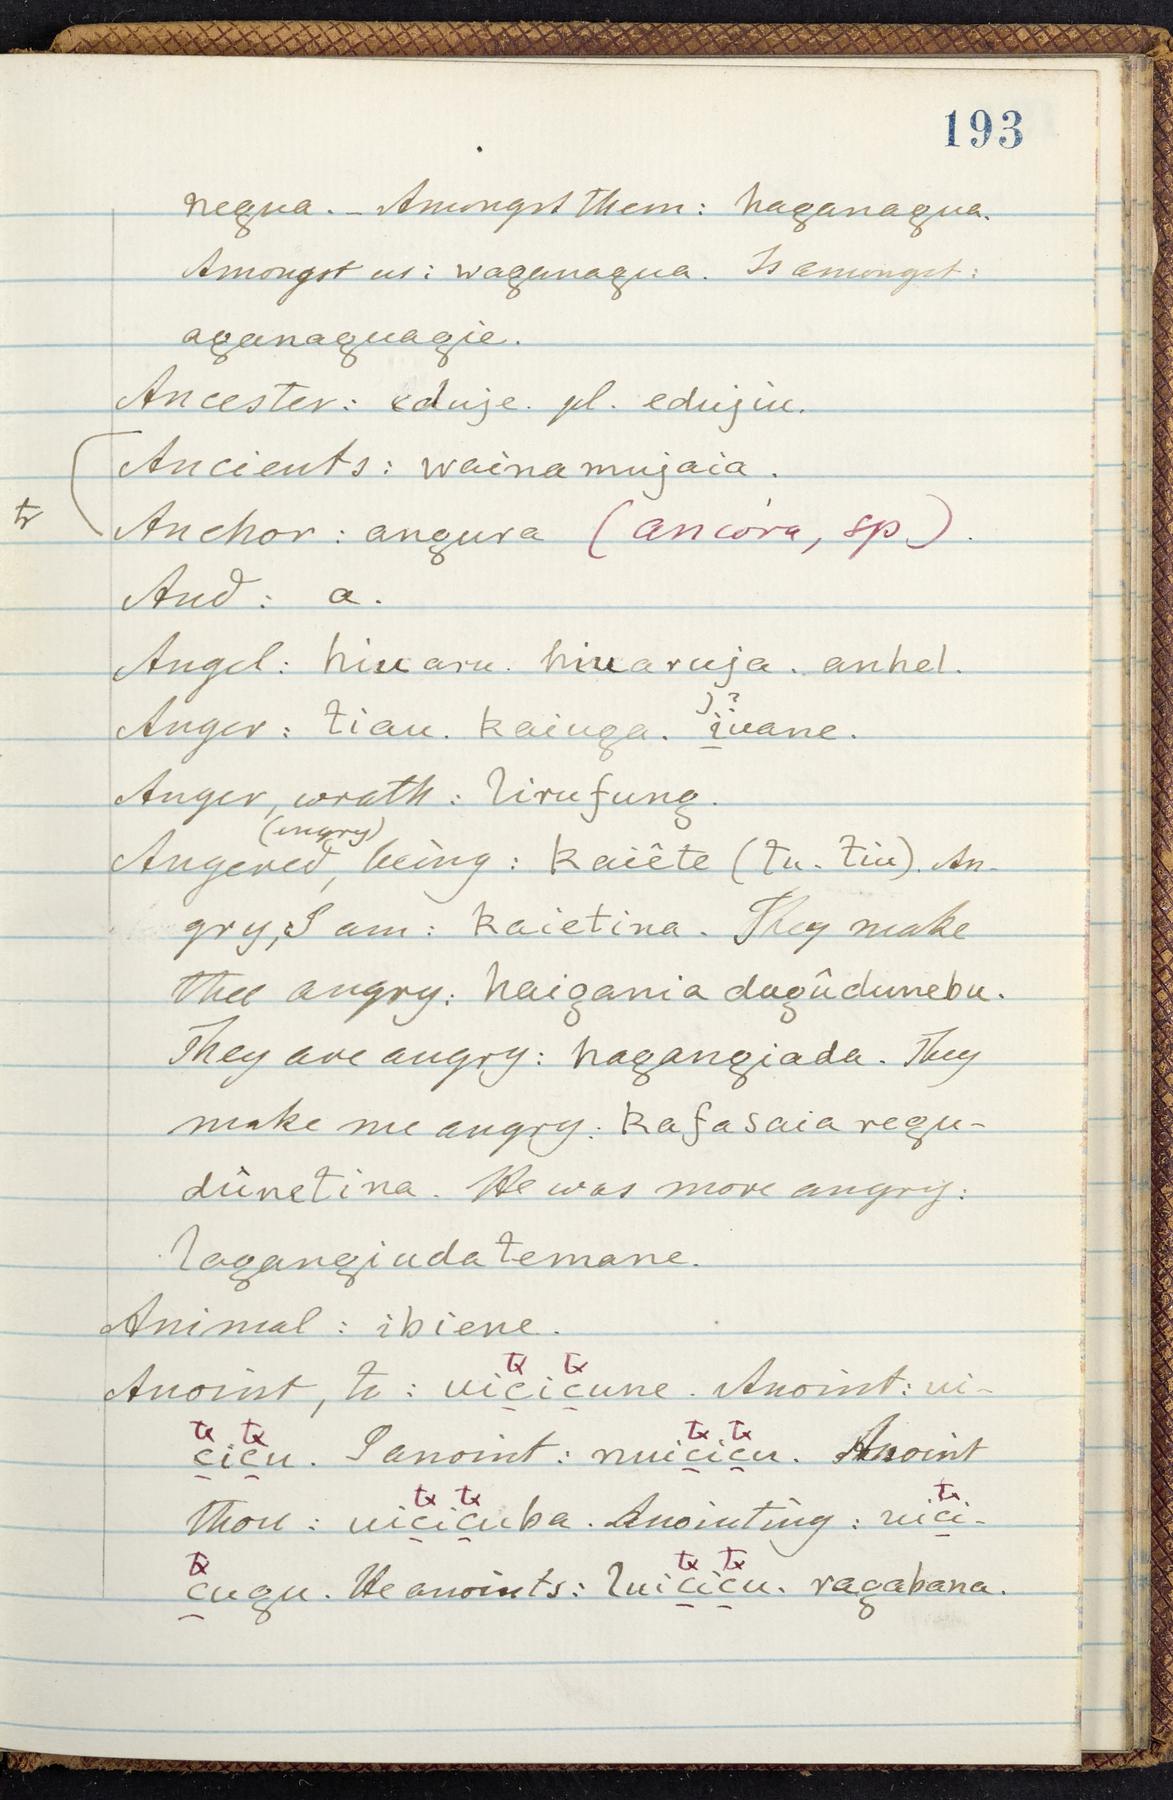 193
negua. – Amongst them: haganagua.
Amongst us: waganagua. Is amongst:
aganaguagie.
Ancester: eduje. pl. edujiu.
Ancients: wainamujaia.
tr Anchor: angura (ancora, sp).
And: a.
Angel: hiuaru. hiuaruja. anhel.
j ?
Anger: tiau. kaiuga. iuane.
Anger, wrath: lirufung.
(angry)
Angered, being: kaiête (tu. tiu). An-
gry, I am: kaietina. They make
thee angry: haigania dugûdunebu.
They are angry: hagangiada. They
make me angry: kafasaia regu-
dùnetina. He was more angry:
lagangiudatemane.
Animal: ibiene.
tx tx
Anoint, to: uicicune. Anoint: ui-
tx tx tx tx
cicu. I anoint: nuicicu. Anoint
tx tx tx
thou: uicicuba. Anointing: uici-
tx tx tx
cugu. He anoints: luicicu. ragabana.